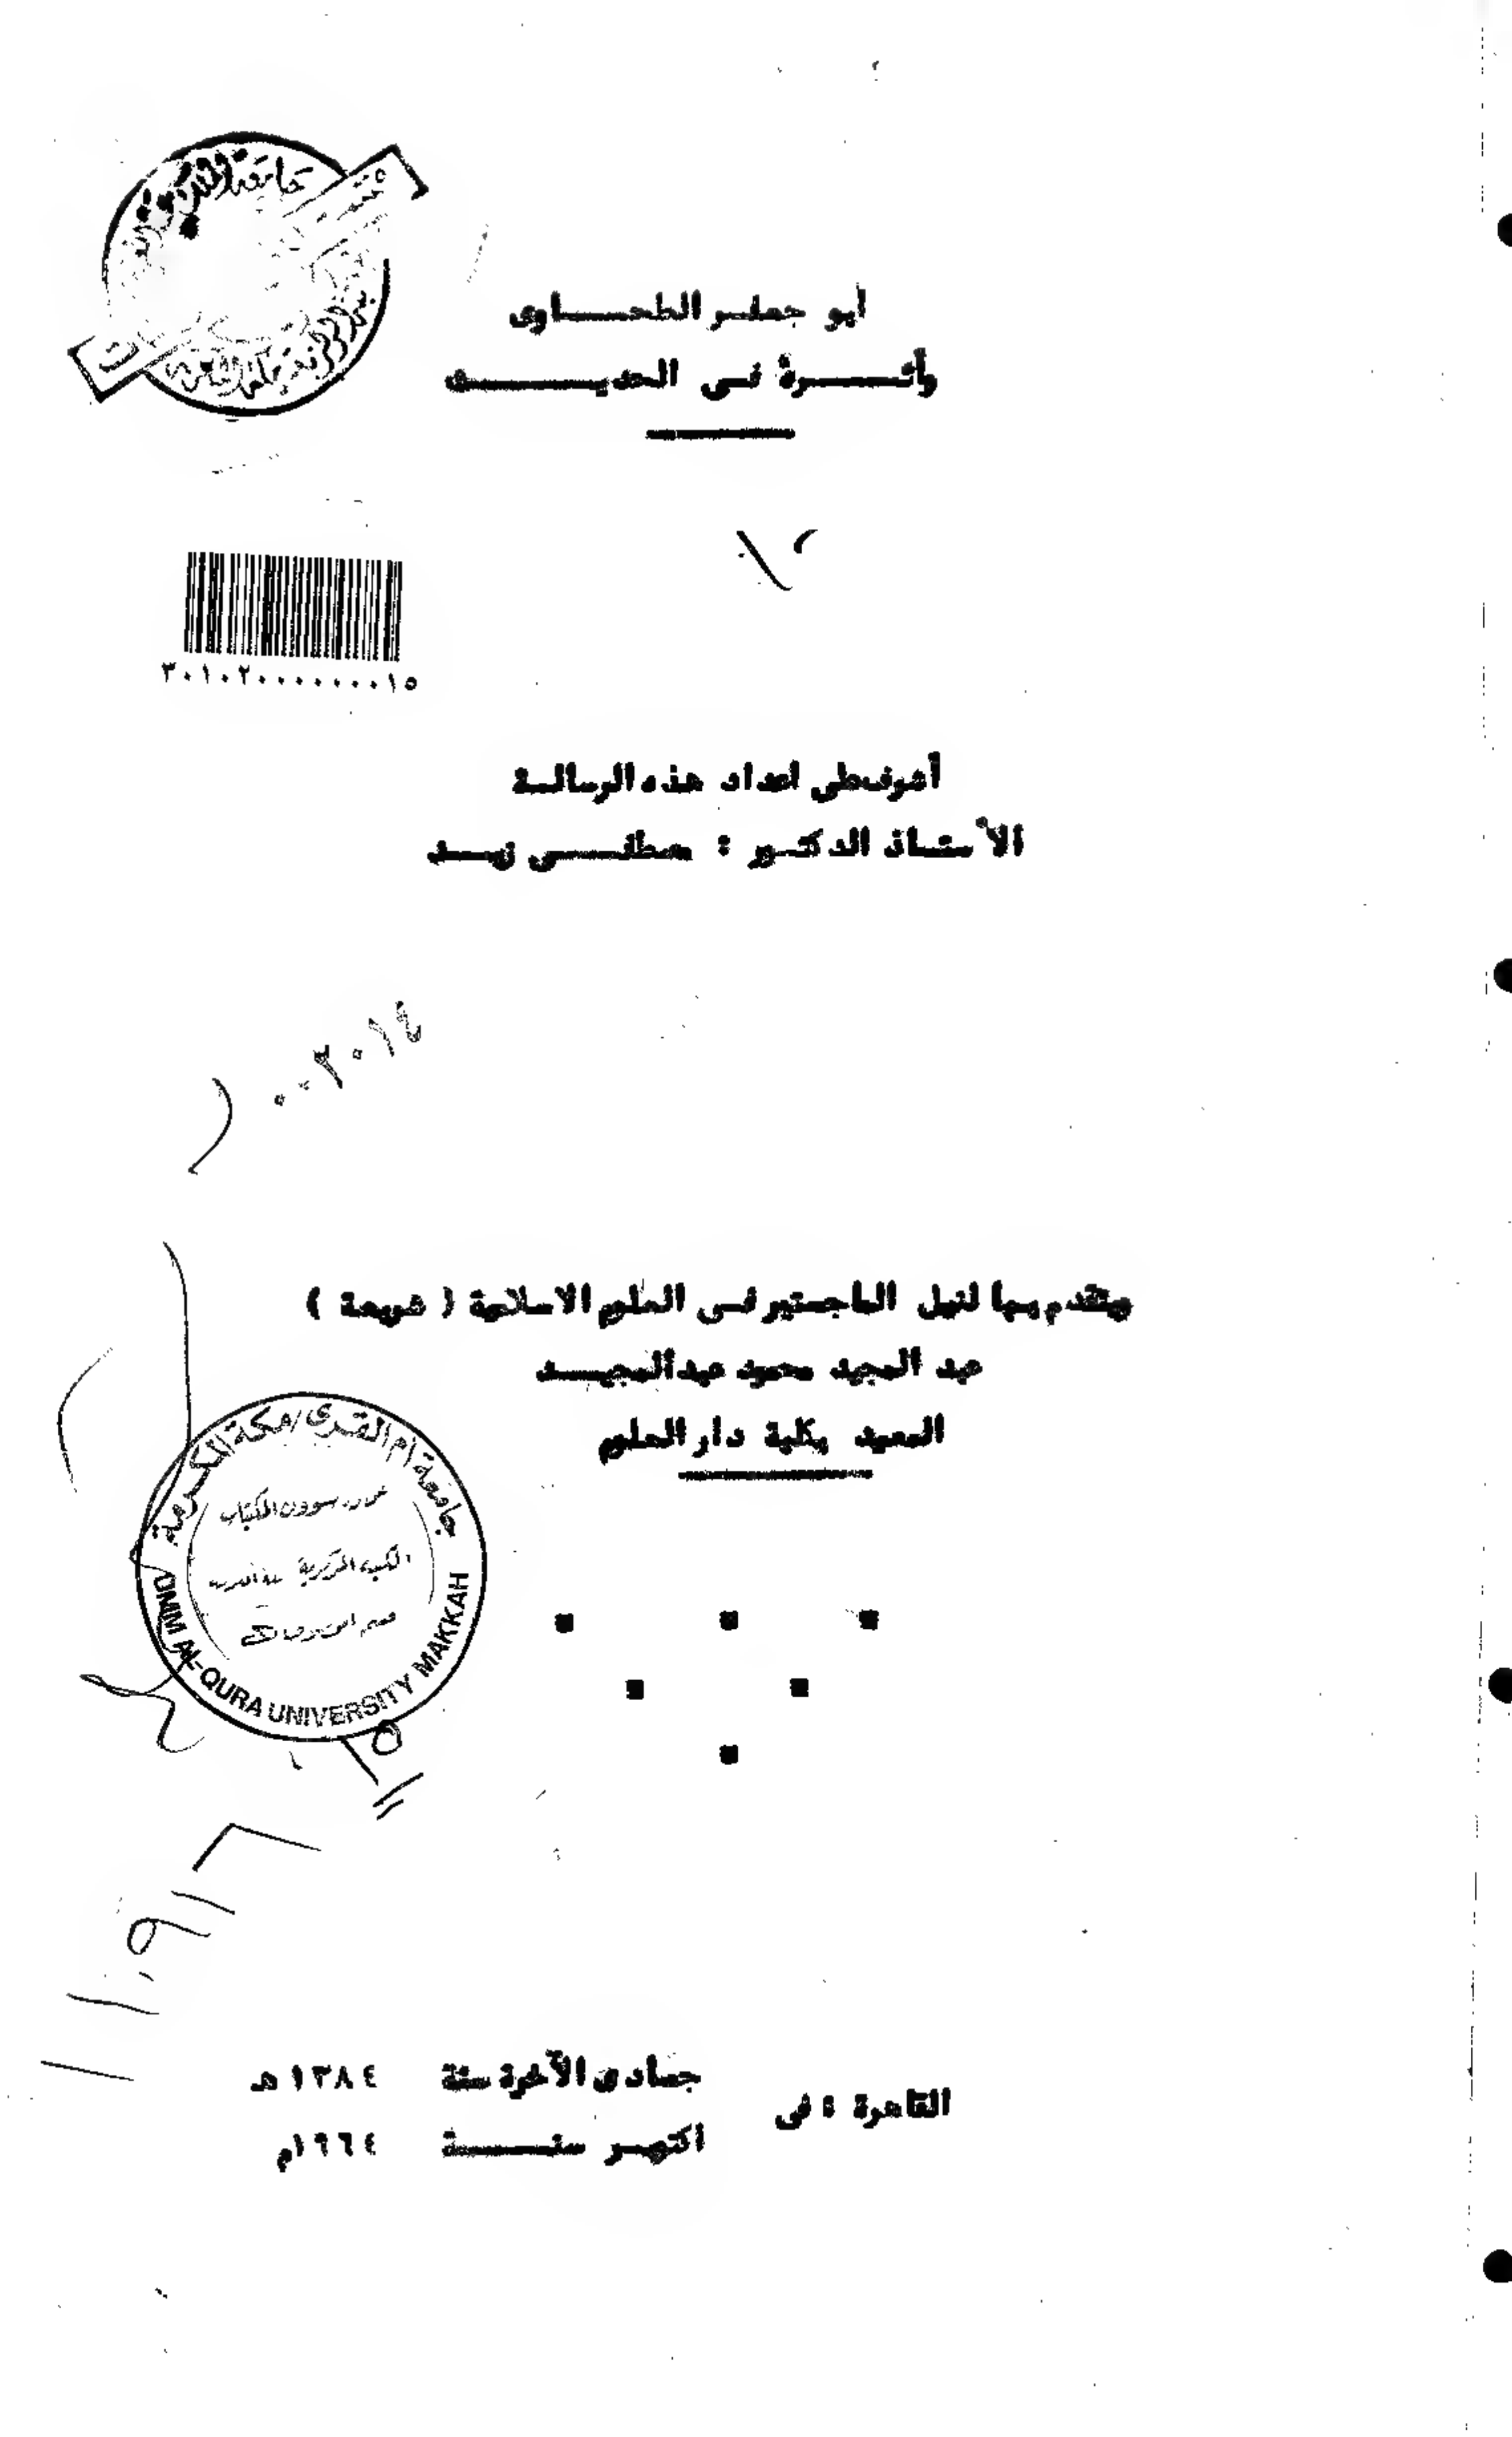 أبو جعفر الطحاوى
وأثره فى الحديث
٣٠١٠٢٠٠٠٠٠٠٠١٥
أشرف على اعداد هذه الرسالة
الأستاذ الدكتور : مصطفى زيد
٠٠٢٠١٤
ويتقدم بها لنيل الماجستير فى العلوم الاسلامية ( شريعة )
عبد المجيد محمود عبد المجيد
المعيد بكلية دار العلوم
جامعة أم القرى / مكة المكرمة
UMM AL-QURA UNIVERSITY MAKKAH
القاهرة : فى
جمادى الآخرة سنة ١٣٨٤ هـ
اكتوبر سنة ١٩٦٤م